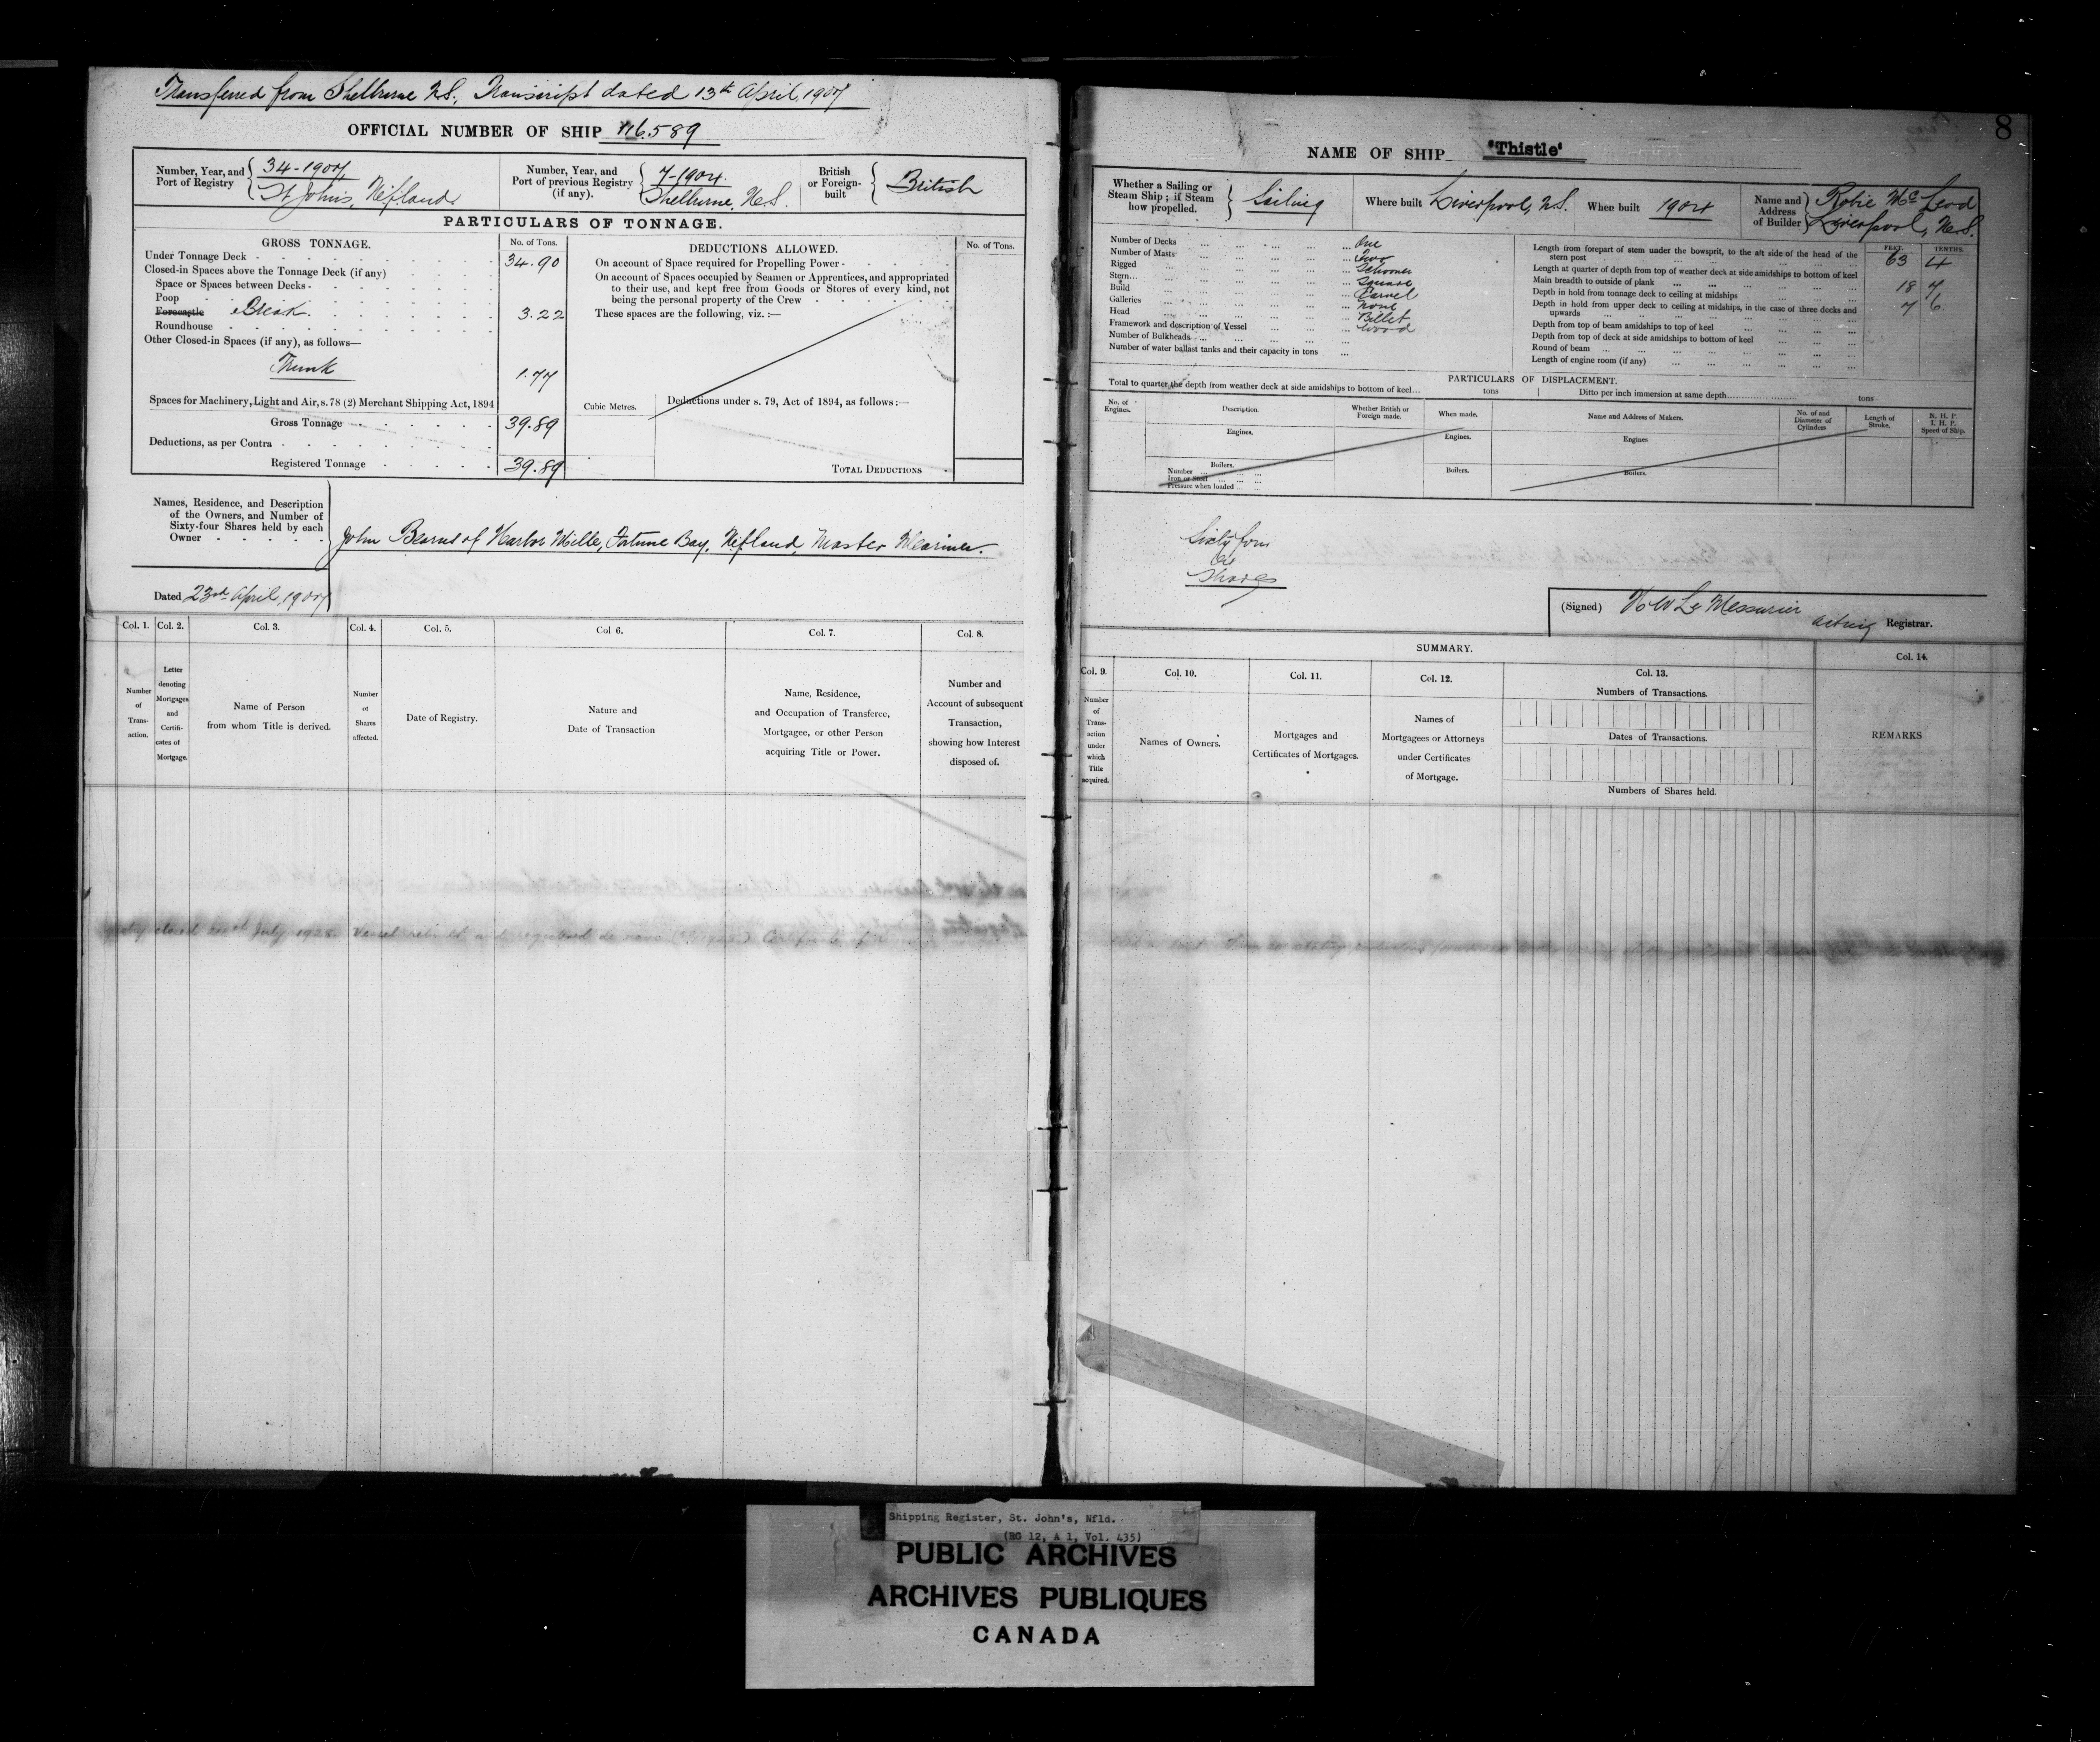 Transferred from Shelburne N.S., Transcript dated 13th April, 1907
OFFICIAL NUMBER OF SHIP 116.589
Number, Year, and Port of Registry 34-1907 St Johns, Nfland
Number, Year, and Port of previous Registry (if any). 7-1904. Shelburne, N.S.
British or Foreign-built British
PARTICULARS OF TONNAGE.
GROSS TONNAGE. No. of Tons.
Under Tonnage Deck 34.90
Closed-in Spaces above the Tonnage Deck (if any)
Space or Spaces between Decks
Poop
Forecastle Break 3.22
Roundhouse
Other Closed-in Spaces (if any), as follows—
Trunk 1.77
Spaces for Machinery, Light and Air, s. 78 (2) Merchant Shipping Act, 1894
Gross Tonnage 39.89
Deductions, as per Contra
Registered Tonnage 39.89
DEDUCTIONS ALLOWED. No. of Tons.
On account of Space required for Propelling Power
On account of Spaces occupied by Seamen or Apprentices, and appropriated
to their use, and kept free from Goods or Stores of every kind, not
being the personal property of the Crew
These spaces are the following, viz. :—
Cubic Metres.
Deductions under s. 79, Act of 1894, as follows :—
TOTAL DEDUCTIONS
Names, Residence, and Description
of the Owners, and Number of
Sixty-four Shares held by each
Owner
John Bearns of Harbor Mille, Fortune Bay, Nfland, Master Mariner.
Dated 23rd April, 1907
Col. 1. Col. 2. Col. 3. Col. 4. Col. 5. Col 6. Col. 7. Col 8.
Number of Trans-action.
Letter denoting Mortgages and Certifi-cates of Mortgage.
Name of Person
from whom Title is derived.
Number of Shares affected.
Date of Registry.
Nature and
Date of Transaction
Name, Residence,
and Occupation of Transferee,
Mortgagee, or other Person
acquiring Title or Power.
Number and
Account of subsequent
Transaction,
showing how Interest
disposed of.
closed July Vessel
8
NAME OF SHIP "Thistle"
Whether a Sailing or Steam Ship; if Steam how propelled. Sailing
Where built Liverpool, N.S.
When built 1904
Name and Address of Builder Robie McLeod Liverpool, N.S.
Number of Decks One
Number of Masts Two
Rigged Schooner
Stern Square
Build Carvel
Galleries None
Head Billet
Framework and description of Vessel Wood
Number of Bulkheads
Number of water ballast tanks and their capacity in tons
FEET. TENTHS.
Length from forepart of stem under the bowsprit, to the aft side of the head of the
stern post 63 4
Length at quarter of depth from top of weather deck at side amidships to bottom of keel
Main breadth to outside of plank 18 7
Depth in hold from tonnage deck to ceiling at midships 7 6
Depth in hold from upper deck to ceiling at midships, in the case of three decks and
upwards
Depth from top of beam amidships to top of keel
Depth from top of deck at side amidships to bottom of keel
Round of beam
Length of engine room (if any)
PARTICULARS OF DISPLACEMENT.
Total to quarter the depth from weather deck at side amidships to bottom of keel... tons
Ditto per inch immersion at same depth tons
No. of Engines.
Description.
Whether British or Foreign made.
When made.
Name and Address of Makers.
No. of and Diameter of Cylinders
Length of Stroke.
N. H. P.
I. H. P.
Speed of Ship.
Engines. Engines. Engines
Boilers. Boilers. Boilers.
Number
Iron or Steel
Pressure when loaded
Sixty four
Shares
(Signed) LeMessurier acting Registrar.
SUMMARY.
Col. 9. Col. 10. Col. 11. Col. 12. Col. 13. Col. 14.
Number of Trans-action under which Title acquired.
Names of Owners.
Mortgages and
Certificates of Mortgages.
Names of
Mortgagees or Attorneys
under Certificates
of Mortgage.
Numbers of Transactions.
Dates of Transactions.
Numbers of Shares held.
REMARKS
Shipping Register, St. John's, Nfld.
(RG 12, A 1, Vol. 435)
PUBLIC ARCHIVES
ARCHIVES PUBLIQUES
CANADA